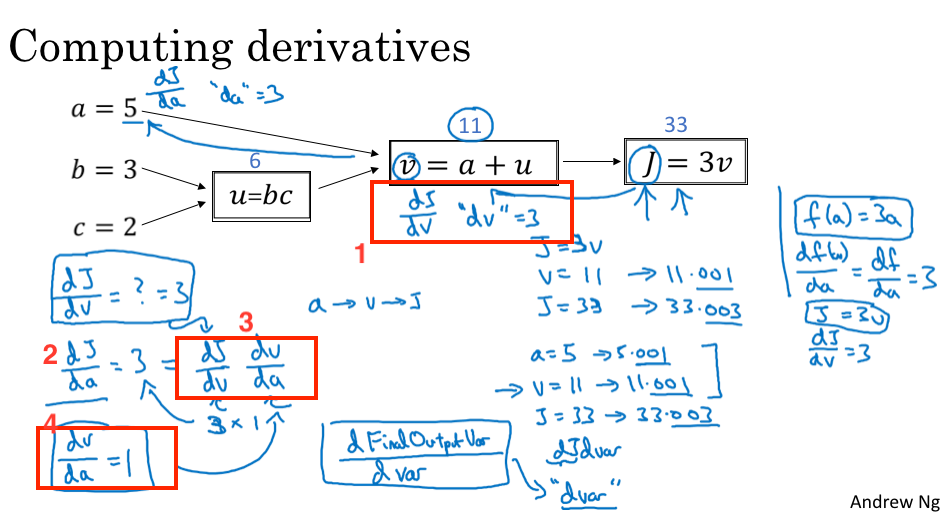 Computing derivatives
dJ/da "da" = 3
a = 5
11
33
v = a + u
J = 3v
b = 3
6
u=bc
c = 2
dJ/dv "dv" = 3
1
J = 3v
v = 11 → 11.001
J = 33 → 33.003
f(a) = 3a
df(a)/da = df/da = 3
J = 3v
dJ/dv = 3
dJ/dv = ? = 3
a → v → J
3
2
dJ/da = 3 = dJ/dv dv/da
3 × 1
a = 5 → 5.001
→ v = 11 → 11.001
J = 33 → 33.003
4
dv/da = 1
d FinalOutputVar / d var
dJdvar
"dvar"
Andrew Ng